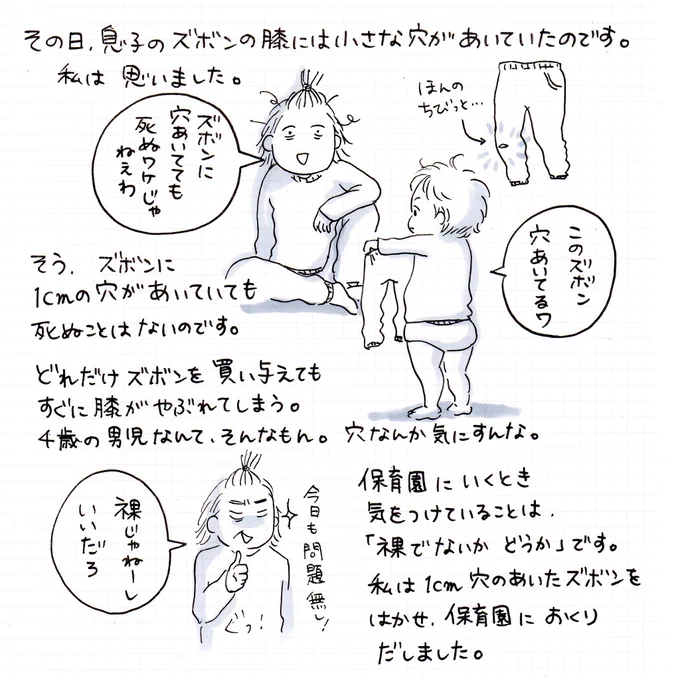 その日、息子のズボンの膝には小さな穴があいていたのです。
私は思いました。
ほんの
ちびっと…
ズボンに
穴あいてても
死ぬワケじゃ
ねぇわ
このズボン
穴あいてるワ
そう、ズボンに
1cmの穴があいていても
死ぬことはないのです。
どれだけズボンを買い与えても
すぐに膝がやぶれてしまう。
4歳の男児なんて、そんなもん。穴なんか気にすんな。
裸じゃねーし
いいだろ
今日も問題無し!
ぐっ!
保育園にいくとき
気をつけていることは、
「裸でないかどうか」です。
私は1cm穴のあいたズボンを
はかせ、保育園におくり
だしました。